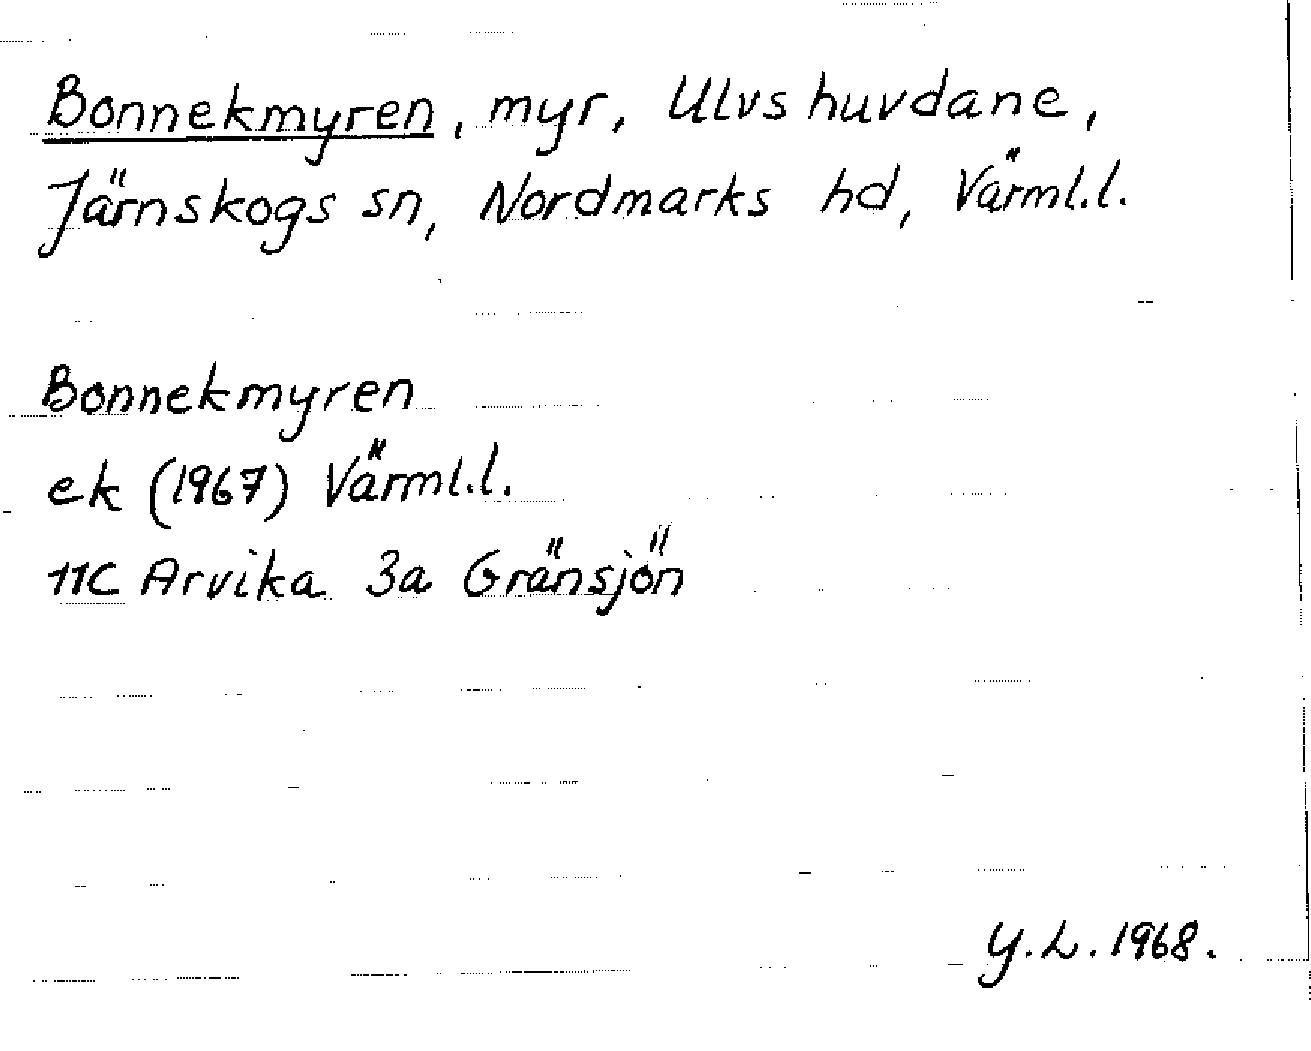 Bonnekmyren, myr, Ulvshuvdane,
Järnskogs sn, Nordmarks hd, Värml.l.
Bonnekmyren
ek (1967) Värml.l.
11C Arvika 3a Gränsjön
Y.L. 1968.